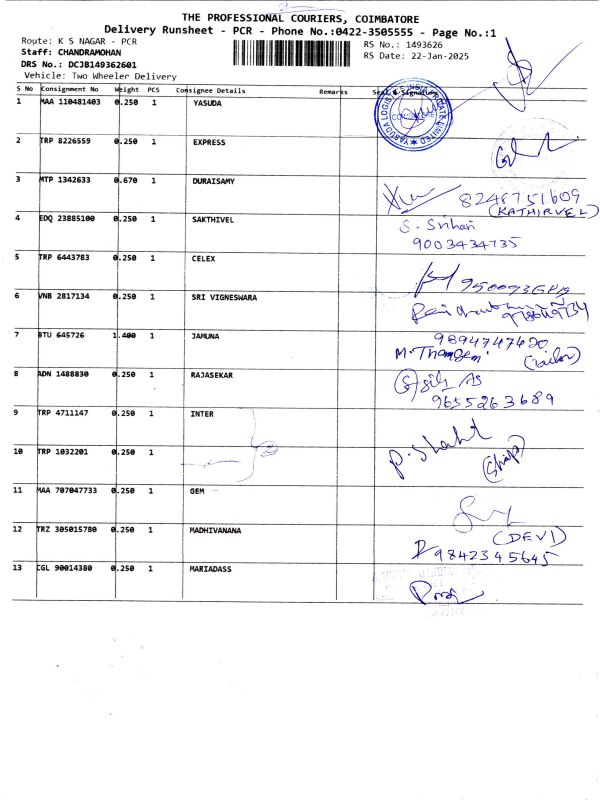 THE PROFESSIONAL COURIERS, COIMBATORE
Delivery Runsheet - PCR - Phone No.:0422-3505555 - Page No.:1
Route: K S NAGAR - PCR
RS No.: 1493626
Staff: CHANDRAMOHAN
RS Date: 22-Jan-2025
DRS No.: DCJB149362601
Vehicle: Two Wheeler Delivery
S No Consignment No Weight PCS Consignee Details Remarks Seal & Signature
1 MAA 110481403 0.250 1 YASUDA
YASUDA LOGISTICS INDIA PRIVATE LIMITED
2 TRP 8226559 0.250 1 EXPRESS
3 MTP 1342633 0.670 1 DURAISAMY
8248751609
(KATHIRVEL)
4 EDQ 23885100 0.250 1 SAKTHIVEL
S. Srihari
9003434735
5 TRP 6443783 0.250 1 CELEX
6 VNB 2817134 0.250 1 SRI VIGNESWARA
7 BTU 645726 1.400 1 JAMUNA
9894747420
8 ADN 1488830 0.250 1 RAJASEKAR
9655263689
9 TRP 4711147 0.250 1 INTER
10 TRP 1032201 0.250 1
11 MAA 707047733 0.250 1 GEM
12 TRZ 305015780 0.250 1 MADHIVANANA
(DEVI)
9842345645
13 CGL 90014380 0.250 1 MARIADASS